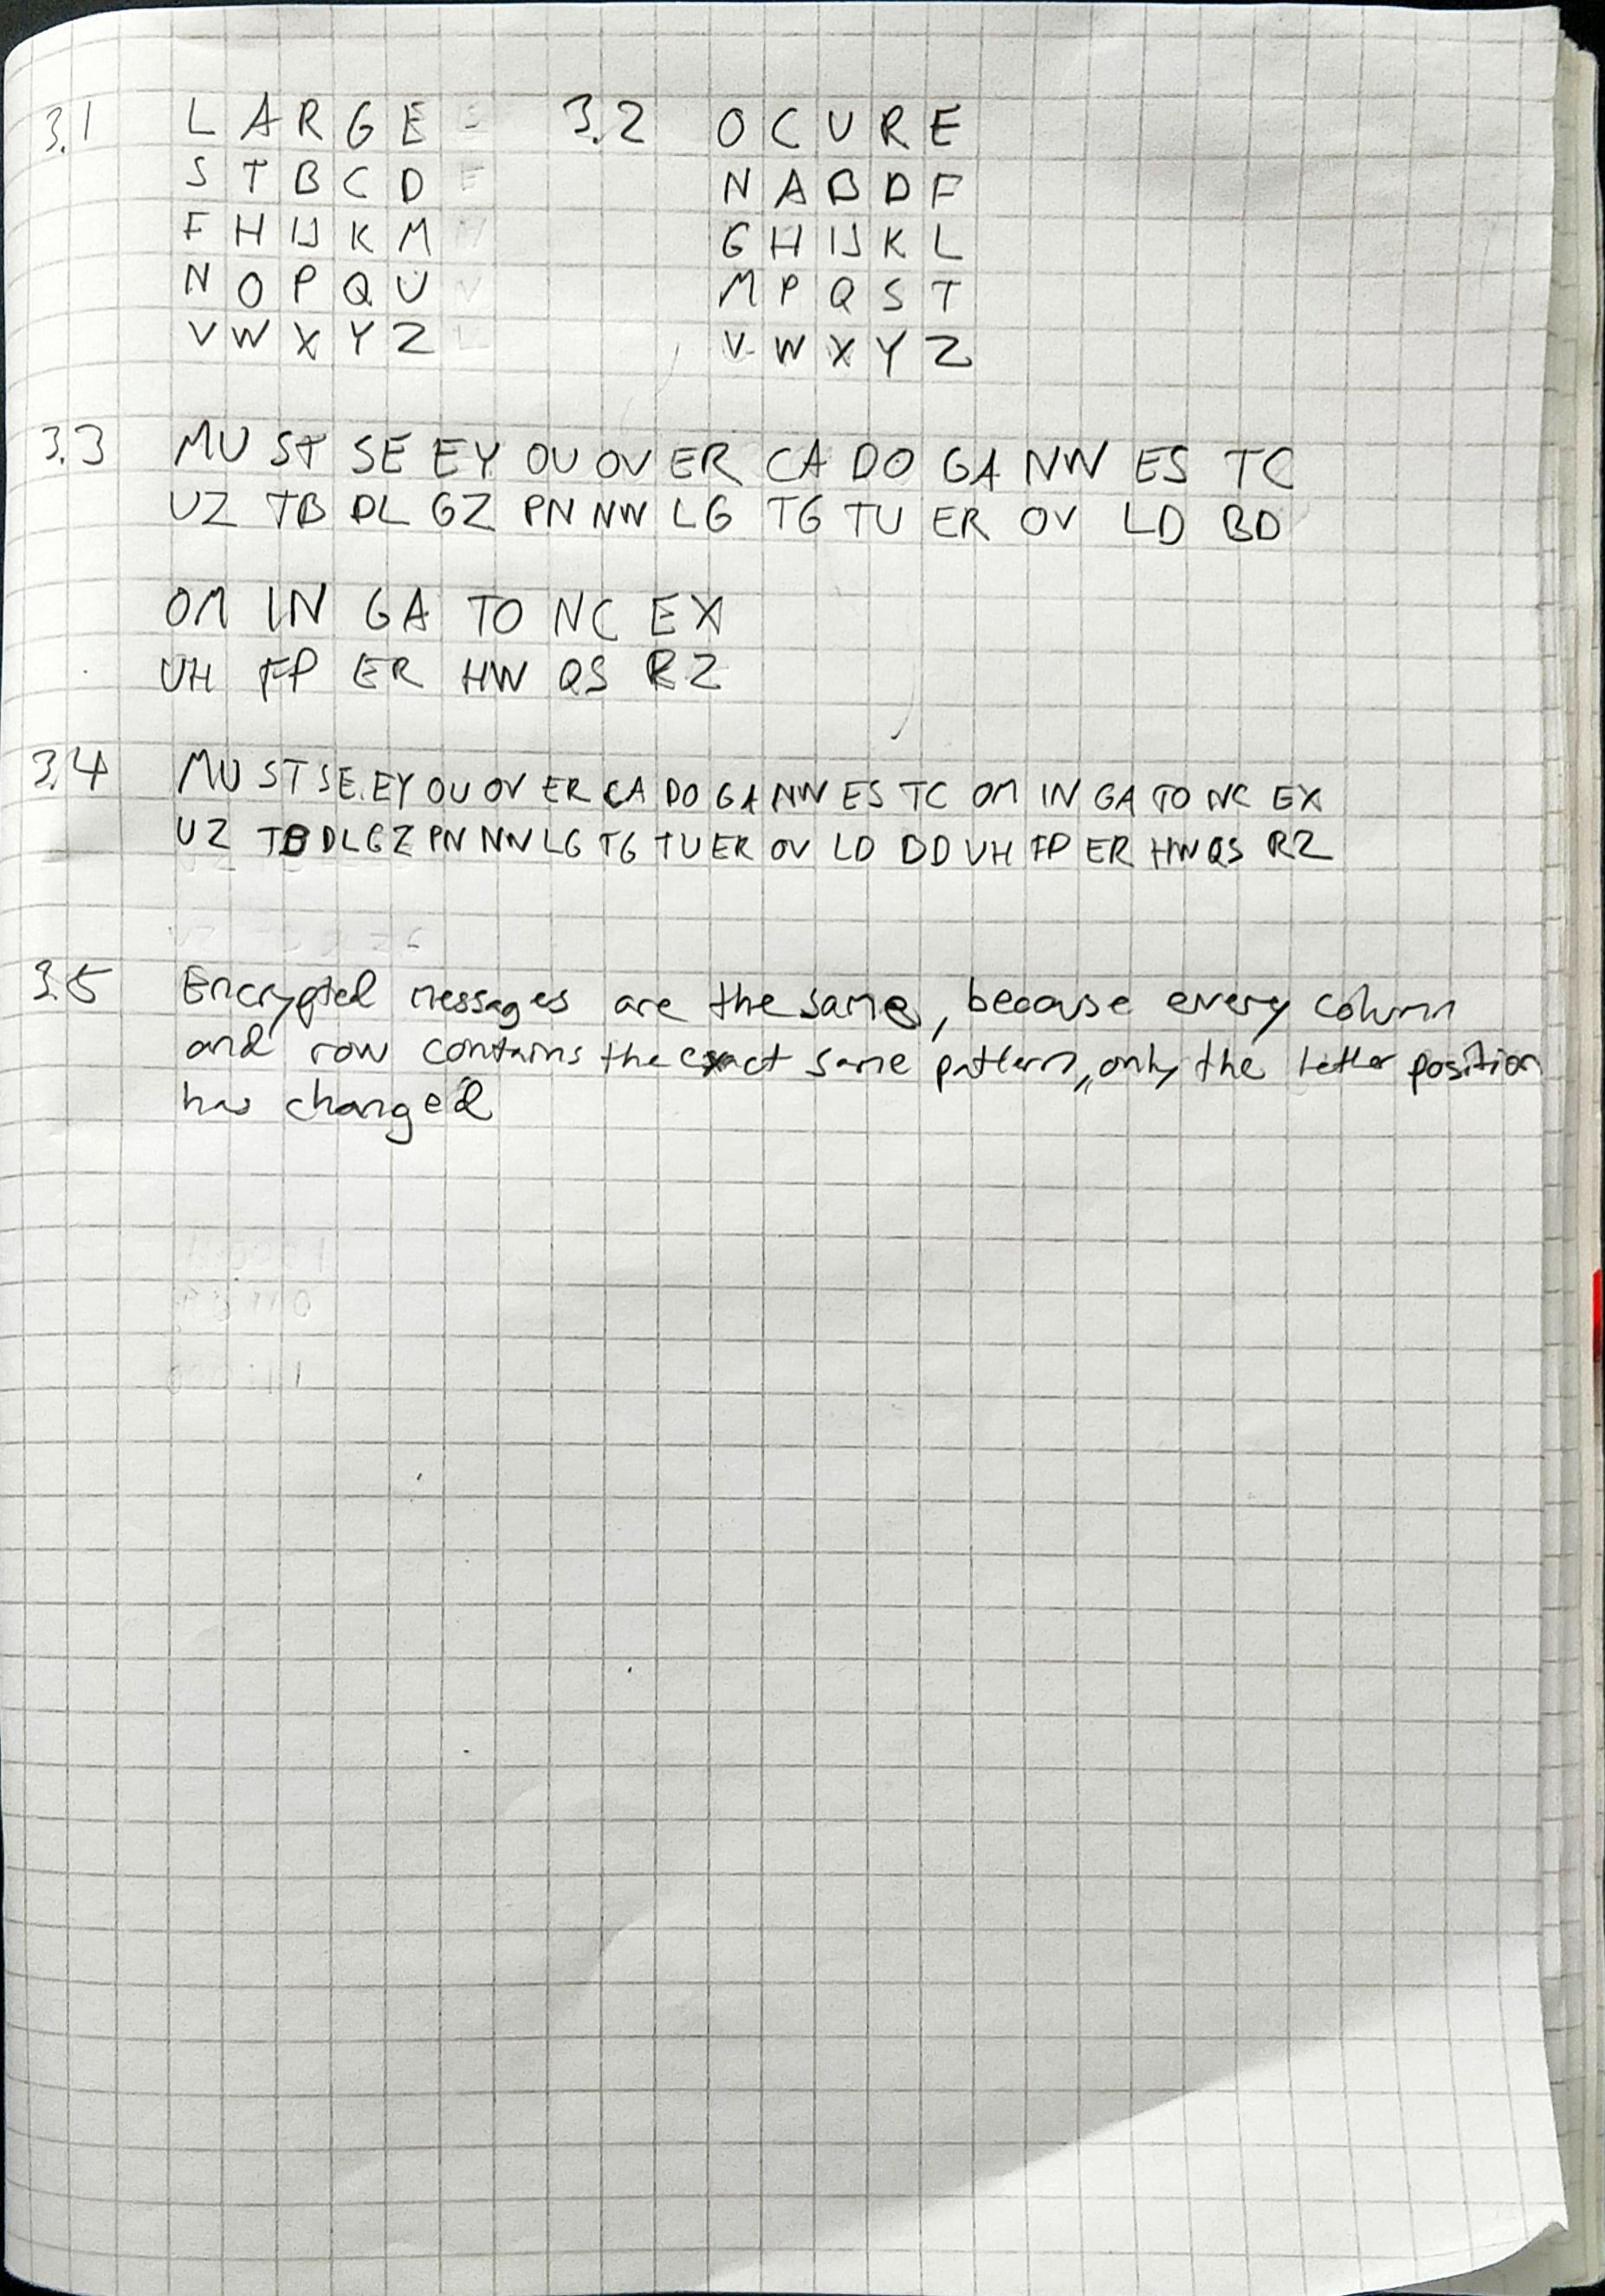 3.1 L A R G E 3.2 O C U R E
S T B C D N A B D F
F H IJ K M G H IJ K L
N O P Q U M P Q S T
V W X Y Z V W X Y Z
3.3 MU ST SE EY OU OV ER CA DO GA NW ES TC
UZ TB DL GZ PN NW LG TG TU ER OV LD BD
OM IN GA TO NC EX
UH FP ER HW QS RZ
3.4 MU ST SE EY OU OV ER CA DO GA NW ES TC OM IN GA TO NC EX
UZ TB DL GZ PN NW LG TG TU ER OV LD BD UH FP ER HW QS RZ
3.5 Encrypted messages are the same, because every column
and row contains the exact same pattern, only the letter position
has changed